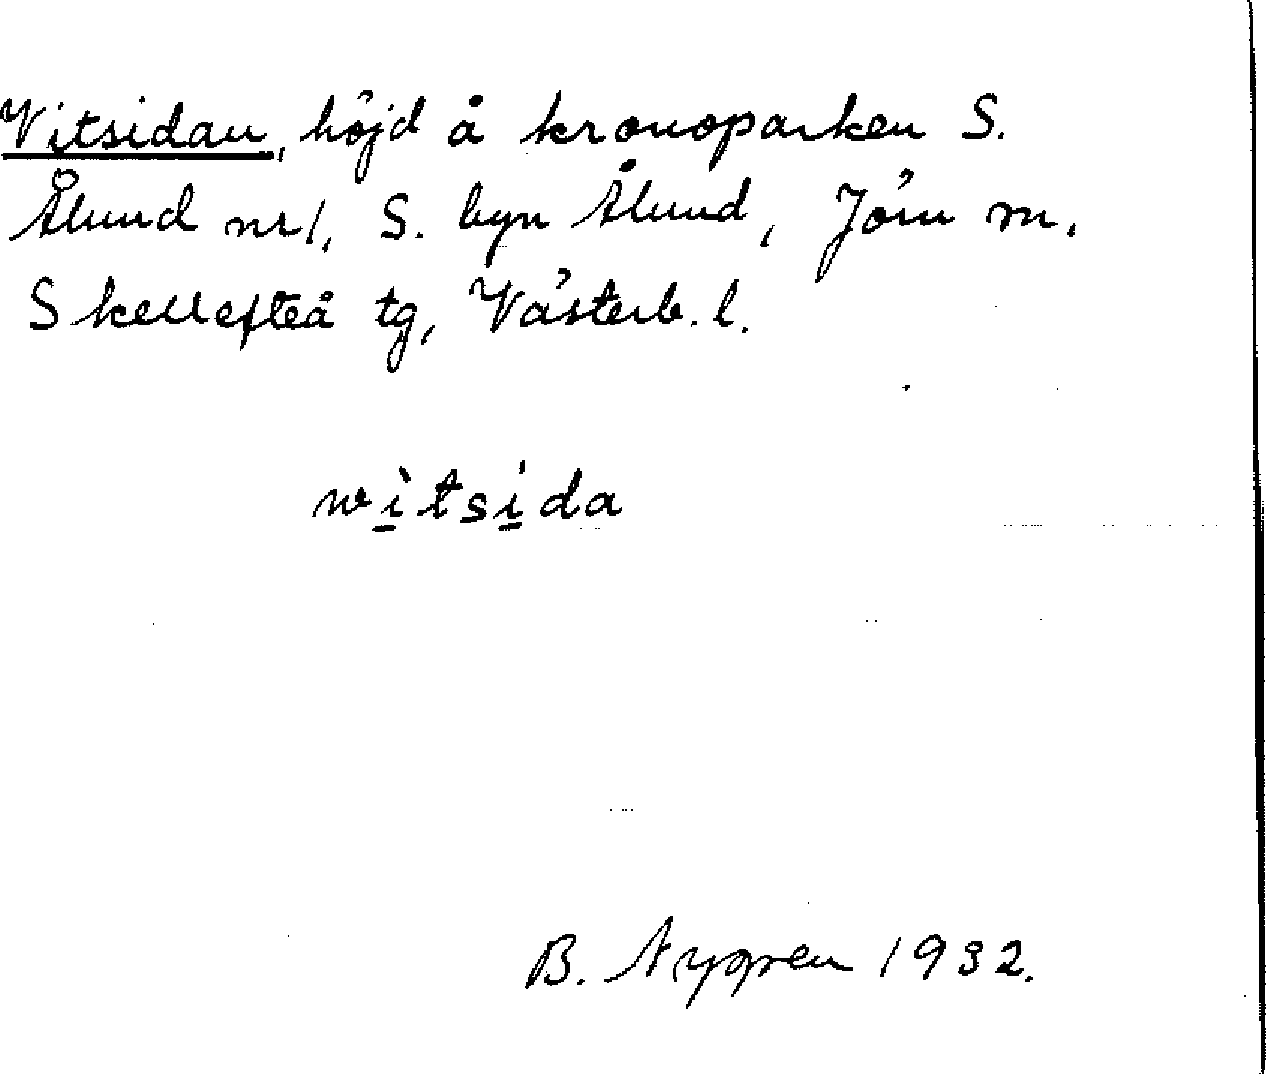 Vitsidan, höjd å kronoparken S.
Ålund nr 1, S. byn Ålund, Jörn m.
Skellefteå tg, Västerb. l.
wìtsída
B. Nygren 1932.